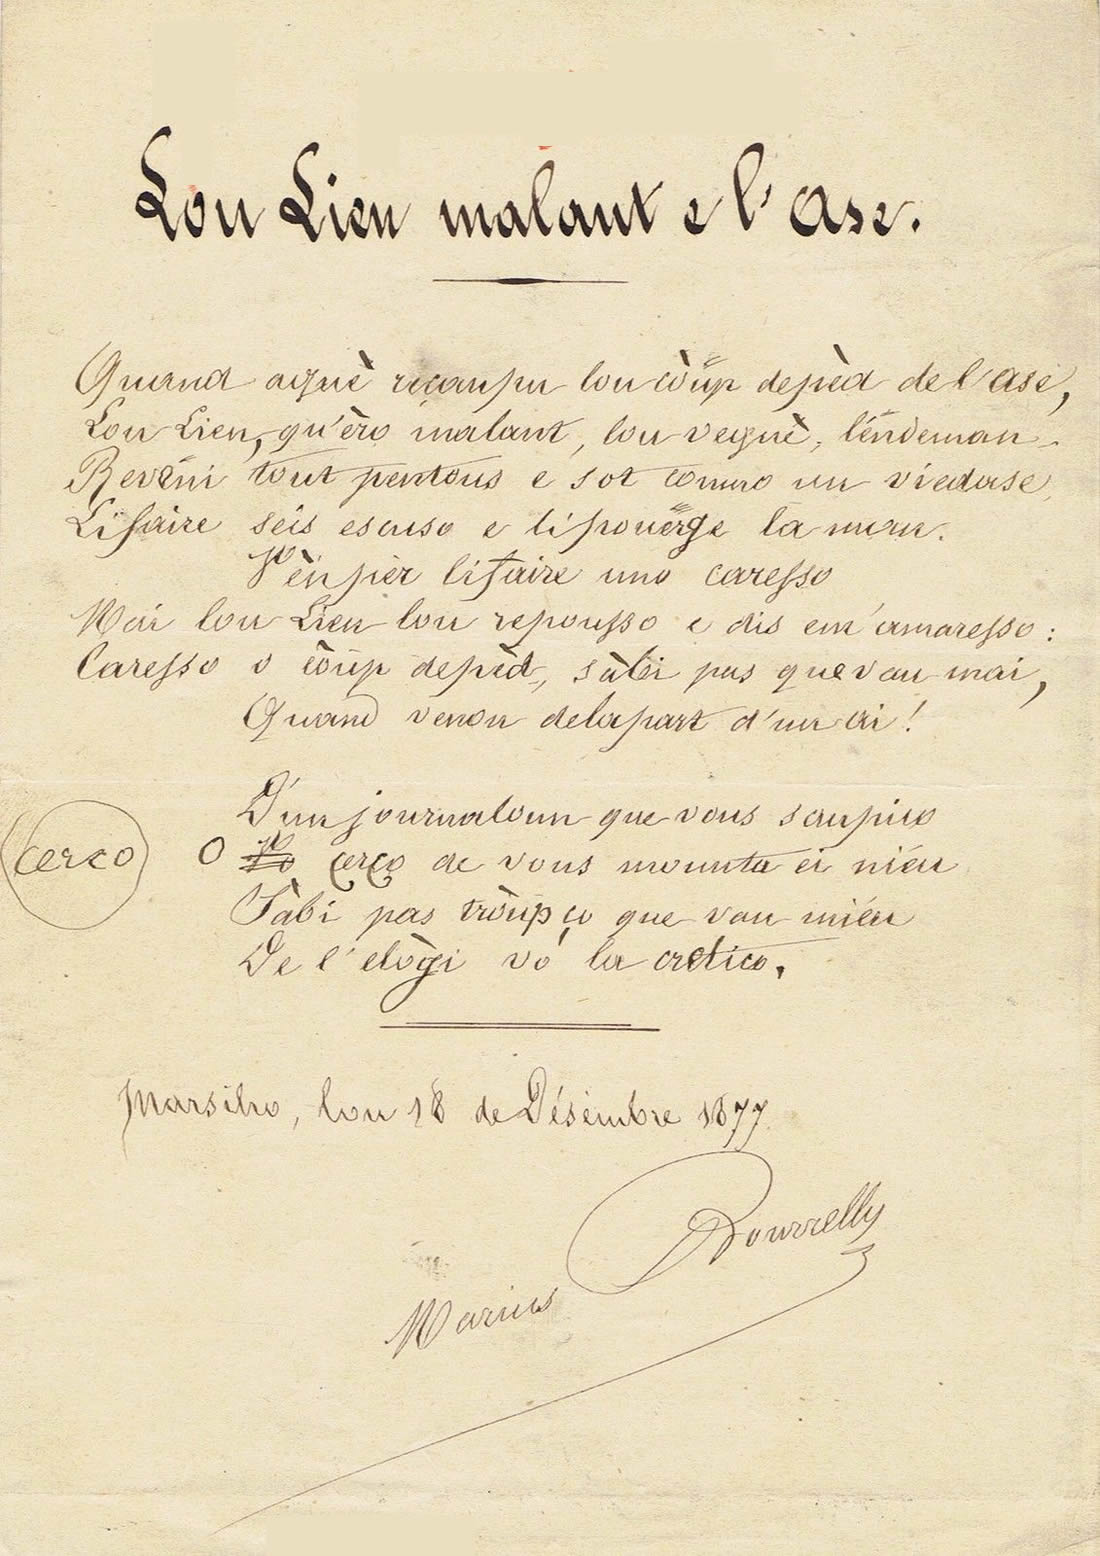 Lou Lien malaut e l'Ase.
Quand aguè reçaupu lou còup depèd de l'Ase,
Lou Lien, qu'èro malaut, lou veguè, l'endeman
Reveni tout pentous e sot coumo un viedase,
Lifaire seis escuso e lipouerge la man.
N'en pièr lifaire uno caresso
Mai lou Lien lou repousso e dis em'amaresso :
Caresso o còup depèd, sàbi pas que vau mai,
Quand venon delapart d'un ai !
D'un journaloun que vous saupico
cerco O cerço de vous mounta ei nièu
Sàbi pas tròup ço que vau mièu
De l'elògi vó la cretico.
Marsiho, lou 18 de Désèmbre 1877
Marius Bourrelly